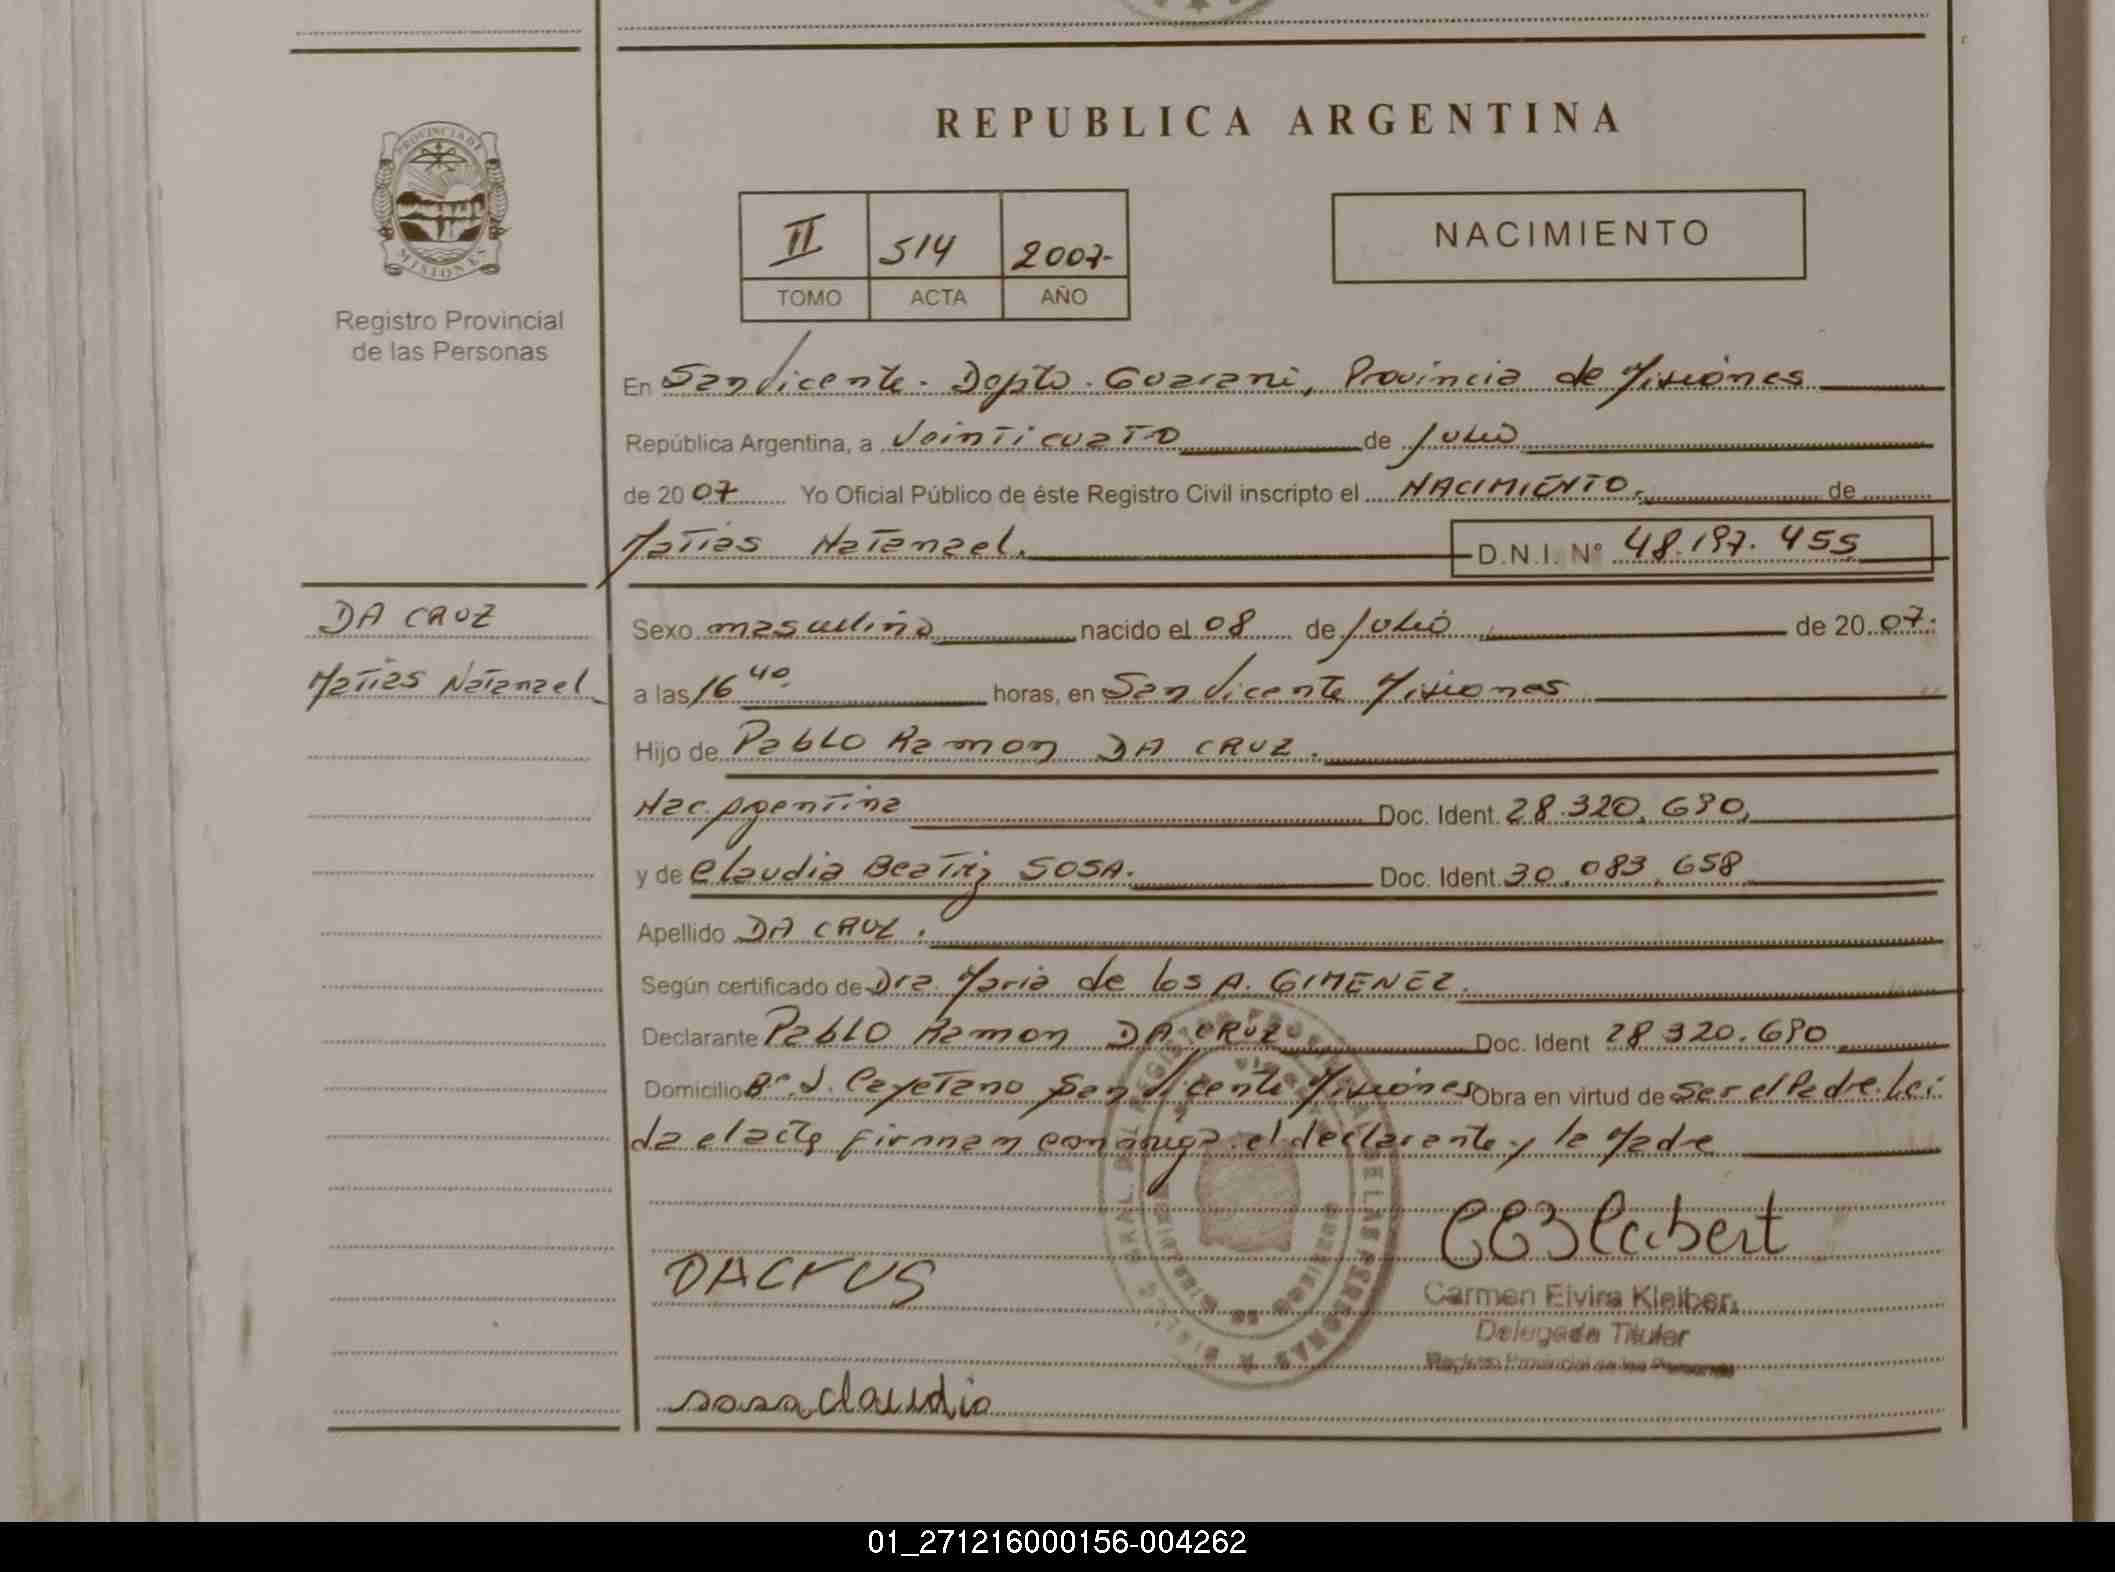 REPUBLICA ARGENTINA
PROVINCIA DE MISIONES
Registro Provincial
de las Personas
II 514 2007-
TOMO ACTA AÑO
NACIMIENTO
En San Vicente. Dopto. Guarani, Provincia de Misiones
República Argentina, a Veinticuatro de Julio
de 2007 Yo Oficial Público de éste Registro Civil inscripto el NACIMIENTO. de
Matias Natanael. D.N.I. Nº 48.197.455
DA CRUZ
Matias Natanael
Sexo masculino nacido el 08 de Julio de 2007.
a las 16 40 horas, en San Vicente Misiones
Hijo de Pablo Ramon DA CRUZ.
Nac. Argentina Doc. Ident. 28.320.690,
y de Claudia Beatriz SOSA. Doc. Ident. 30.083.658
Apellido DA CRUZ.
Según certificado de Dra. Maria de los A. GIMENEZ.
Declarante Pablo Ramon DA CRUZ Doc. Ident 28 320.690
Domicilio Bº. S. Cayetano San Vicente Misiones Obra en virtud de ser el Padre. Lei
da el acta firman conmigo. el declarante y la Madre
DACrUS
Carmen Elvira Kleiber
Delegada Titular
Registro Provincial de las Personas
sosa claudia
01_271216000156-004262